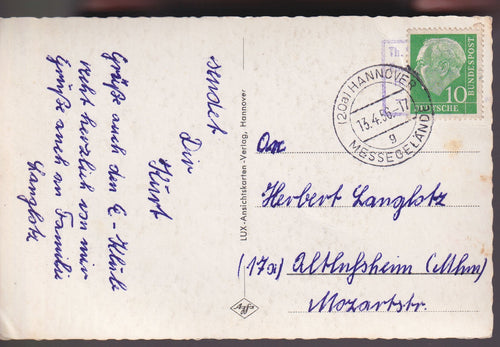 sendet
Dir
Kurt
Grüße auch den E-Klub
recht herzlich von mir
Grüße auch an Familie
Langlotz
LUX-Ansichtskarten-Verlag, Hannover
Agfa
(20a) HANNOVER
13.4.56.-17
g
MESSEGELÄNDE
DEUTSCHE BUNDESPOST
10
An
Herbert Langlotz
(17a) Altlußheim (Mhm)
Mozartstr.